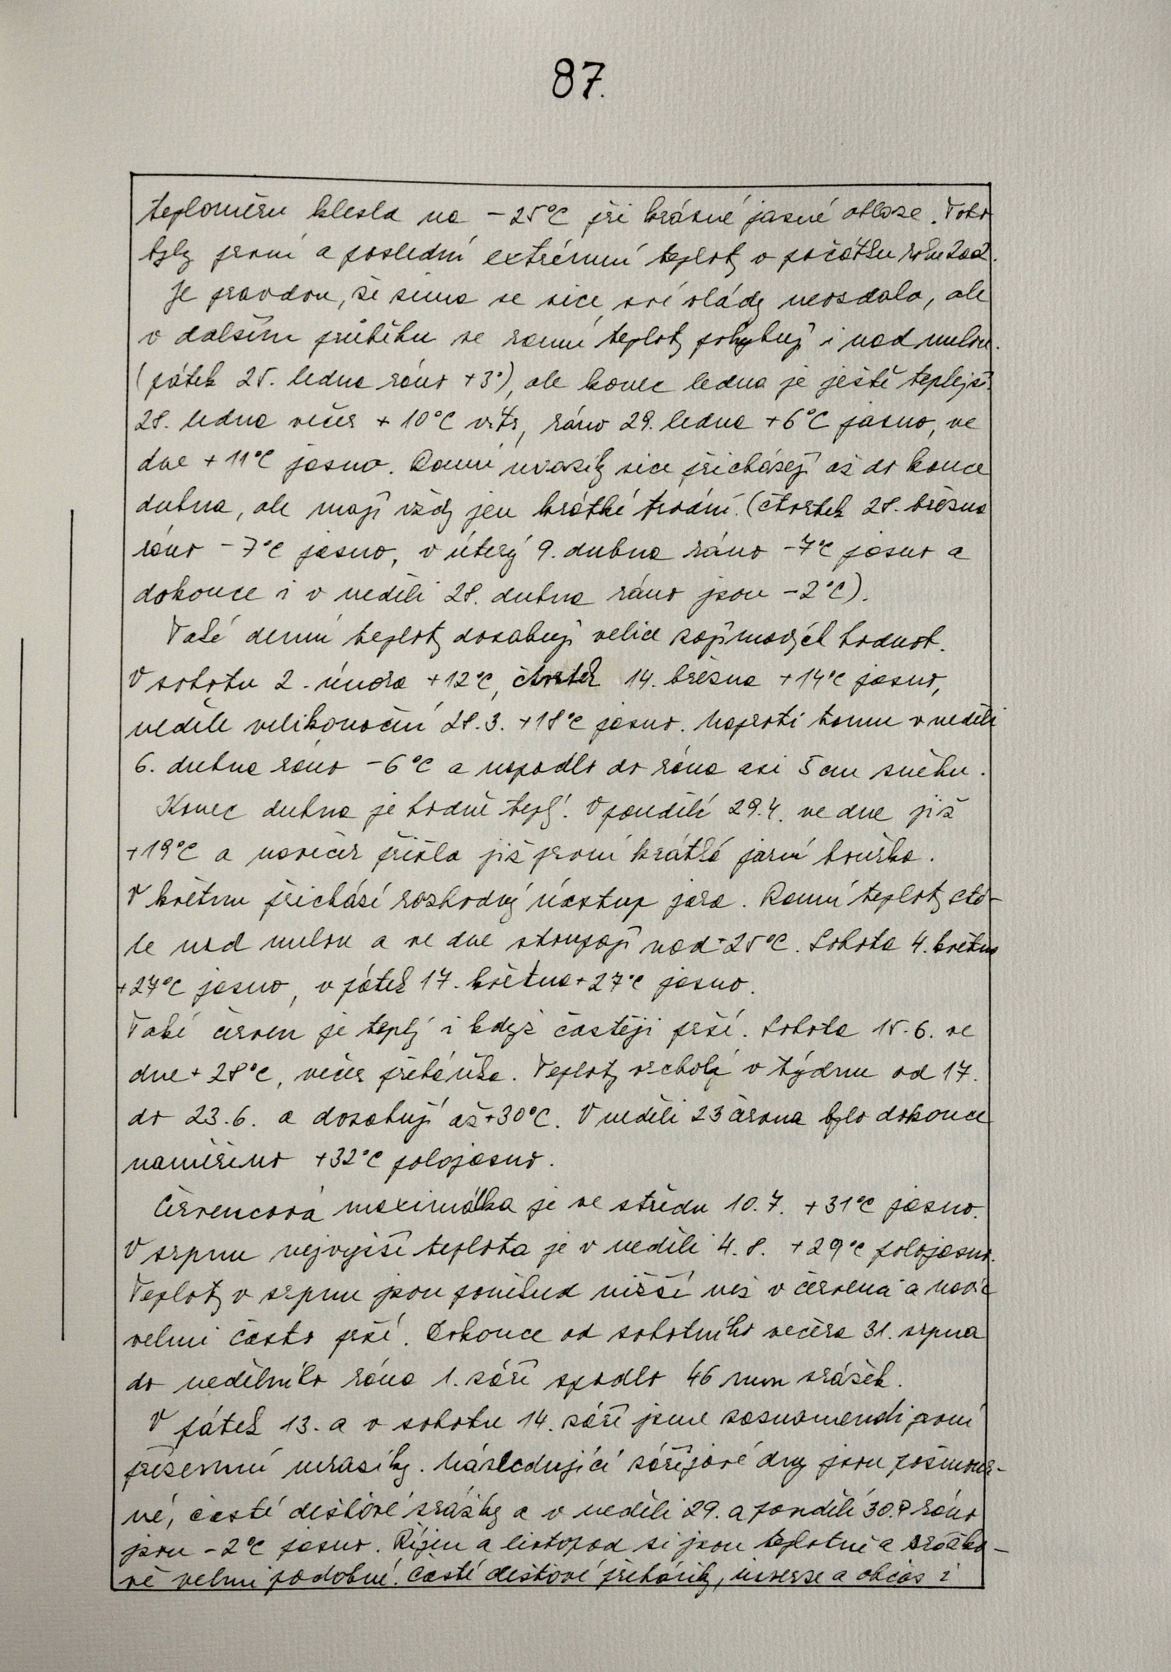 87.
teploměru klesla na -25°C při krásné jasné obloze. Toto
byly první a poslední extrémní teploty v počátku roku 2002.
Je pravdou, že zima se sice své vlády nevzdala, ale
v dalším průběhu se ranní teploty pohybují i nad nulou.
(pátek 25. ledna ráno +3°), ale konec ledna je ještě teplejší.
28. ledna večer +10°C vítr, ráno 29. ledna +6°C jasno, ve
dne +11°C jasno. Ranní mrazíky sice přicházejí až do konce
dubna, ale mají vždy jen krátké trvání. (čtvrtek 28. března
ráno -7°C jasno, v úterý 9. dubna ráno -7°C jasno a
dokonce i v neděli 28. dubna ráno jsou -2°C).
Také denní teploty dosahují velice zajímavých hodnot.
V sobotu 2. února +12°C, čtvrtek 14. března +14°C jasno,
neděle velikonoční 28.3. +18°C jasno. Naproti tomu v neděli
6. dubna ráno -6°C a napadlo do rána asi 5 cm sněhu.
Konec dubna je hodně teplý. V pondělí 29.4. ve dne již
+19°C a navečer přišla již první krátká jarní bouřka.
V květnu přichází rozhodný nástup jara. Ranní teploty stá-
le nad nulou a ve dne stoupají nad +25°C. Sobota 4. května
+27°C jasno, v pátek 17. května +27°C jasno.
Také červen je teplý i když častěji prší. Sobota 15.6. ve
dne +28°C, večer přeháňka. Teploty vrcholí v týdnu od 17.
do 23.6. a dosahují až +30°C. V neděli 23 června bylo dokonce
naměřeno +32°C polojasno.
Červencová maximálka je ve středu 10.7. +31°C jasno.
V srpnu nejvyšší teplota je v neděli 4.8. +29°C polojasno.
Teploty v srpnu jsou poněkud nižší než v červenci a navíc
velmi často prší. Dokonce od sobotního večera 31. srpna
do nedělního rána 1. září spadlo 46 mm srážek.
V pátek 13. a v sobotu 14. září jsme zaznamenali první
přízemní mrazíky. Následující zářijové dny jsou pošmour-
né, časté dešťové srážky a v neděli 29. a pondělí 30.9 ráno
jsou -2°C jasno. Říjen a listopad si jsou teplotně a srážko-
vě velmi podobné. Časté dešťové přeháňky, inverze a občas i